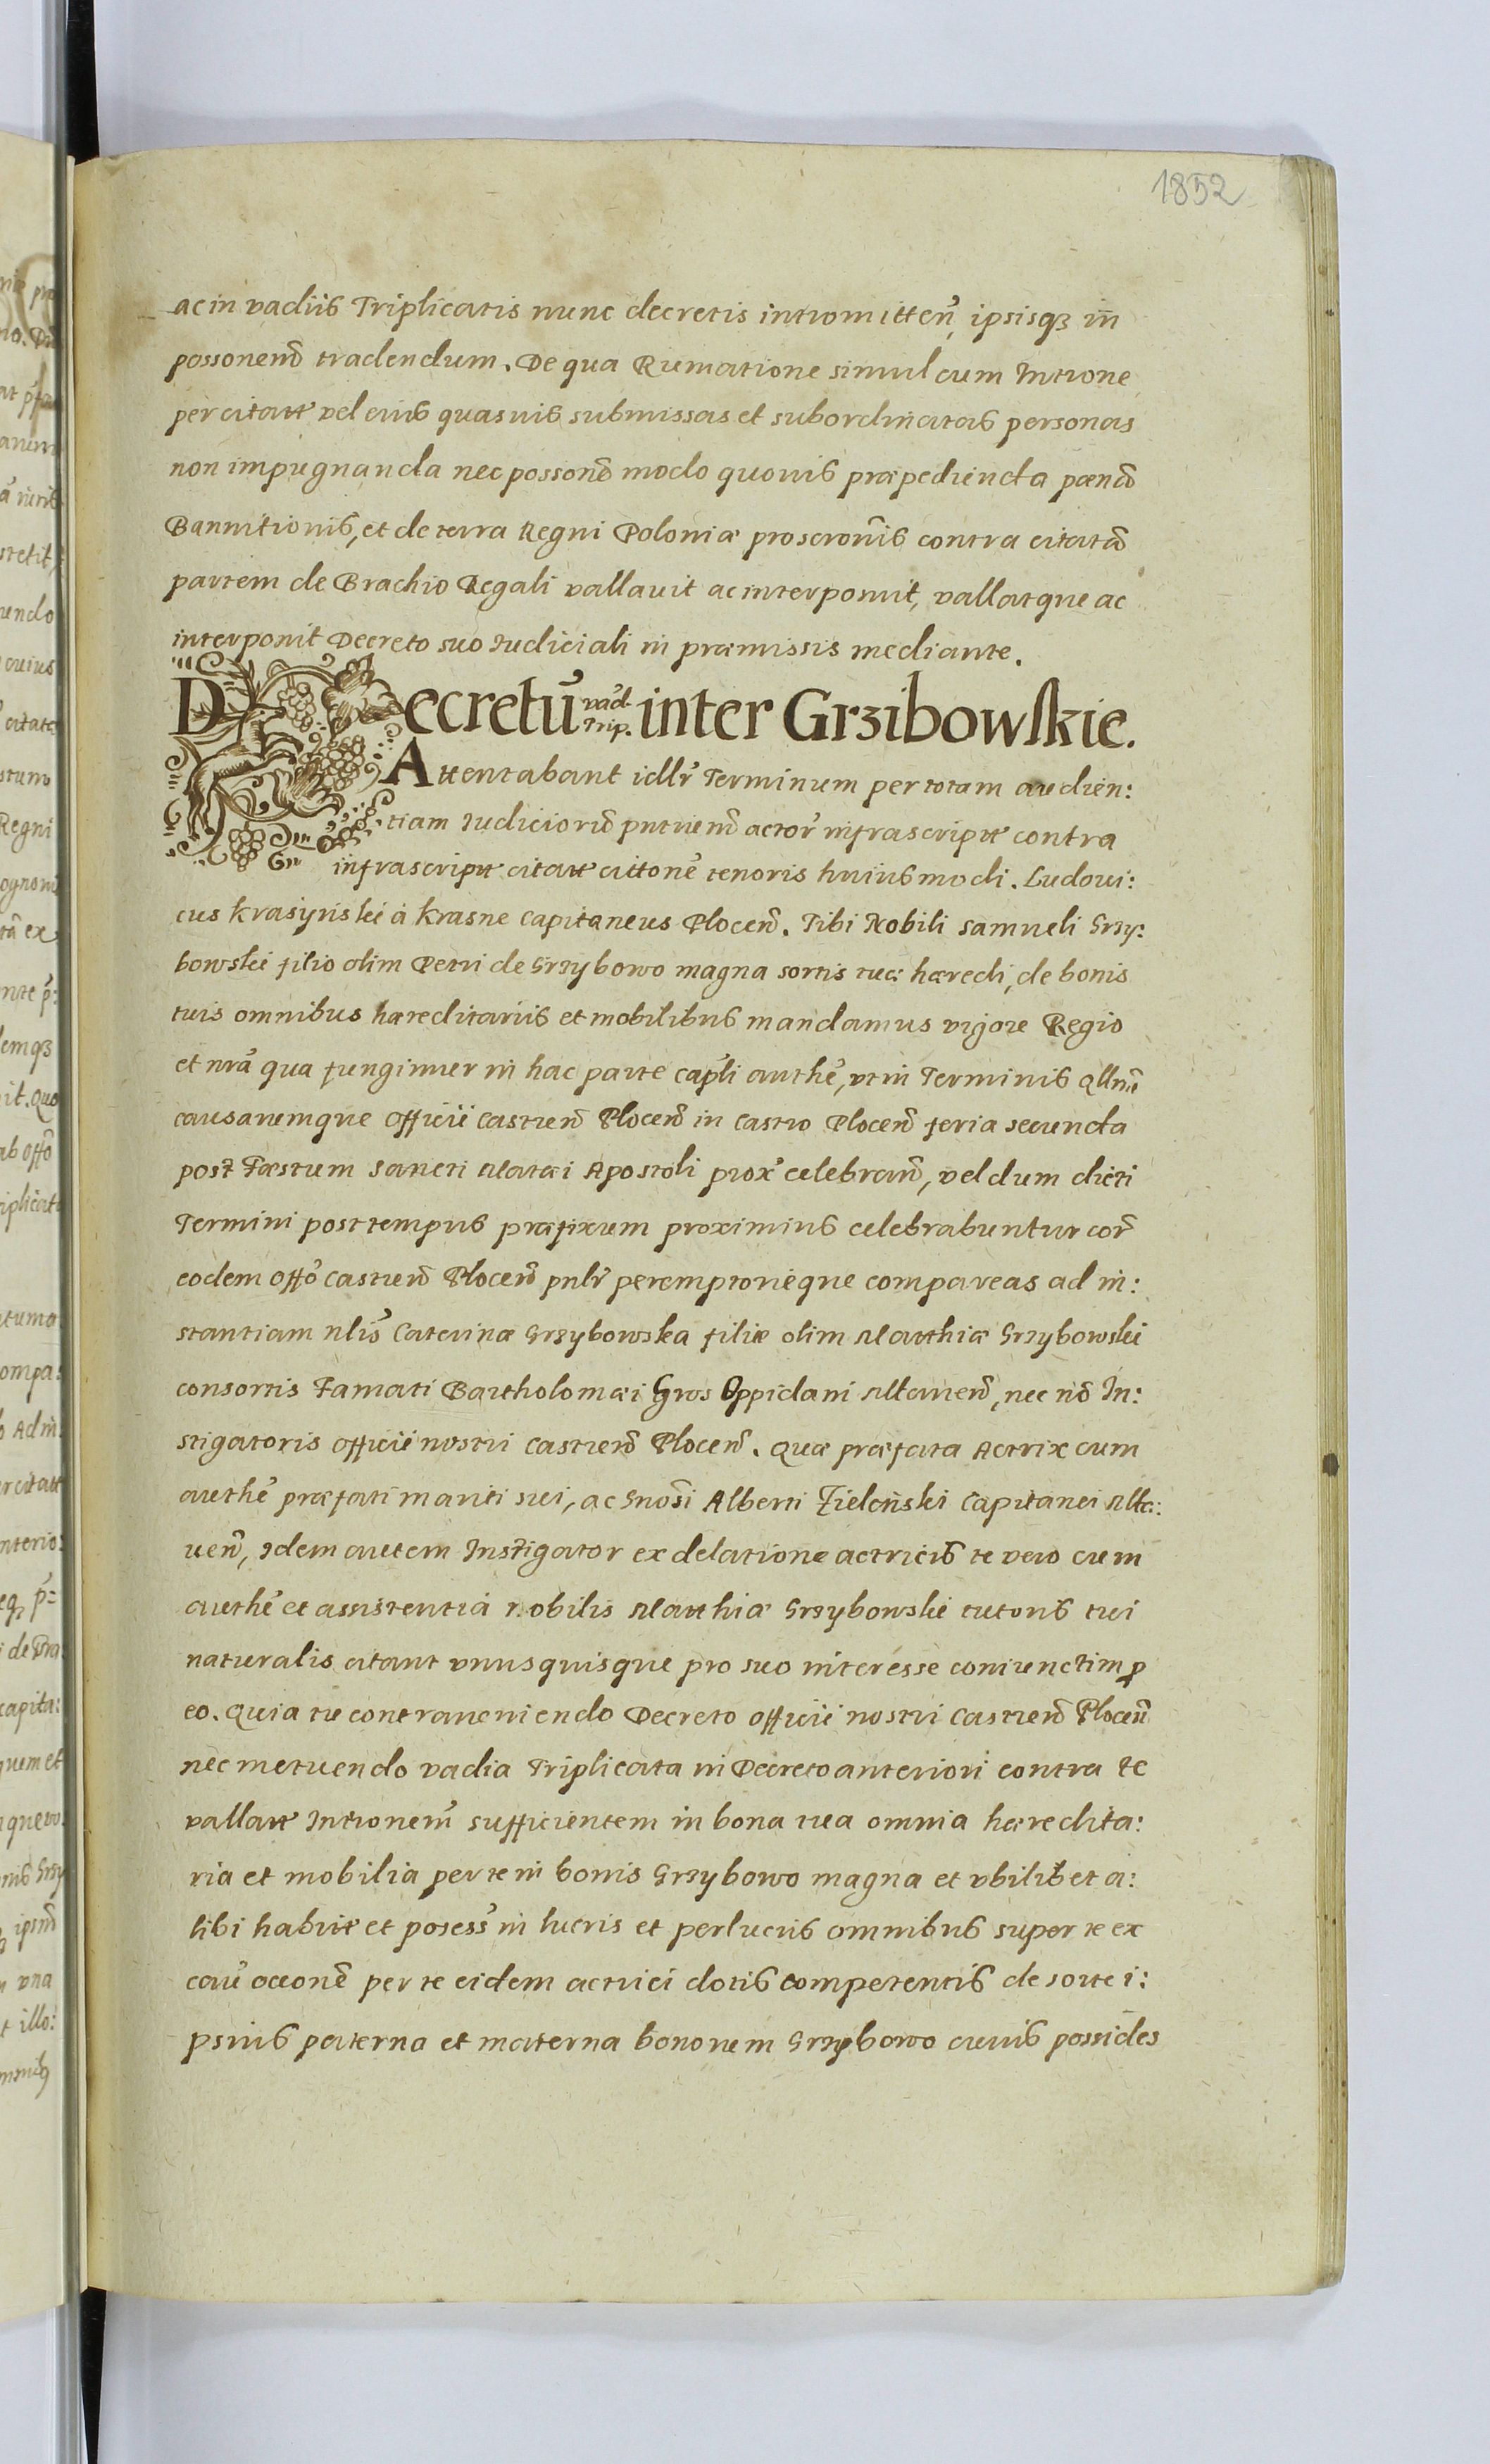 1852
ac in vadiis Triplicatis nunc decretis intromitten̄, ipsisqȝ in̄
possonen̄ tradendum. De qua Rumatione simul cum Introne
per citatt vel eius quasuis submissas et subordinatas personas
non impugnanda nec posson̄e modo quouis præpedienda pæn̄a
Bannitionis, et de terra Regni Poloniæ proscron̄is contra citatā
partem de Brachio Regali vallauit ac interposuit, vallatque ac
interponit Decreto suo Iudiciali in præmissis mediante.
Decretū vad. Trip. inter Grzibowskie.
Attentabant idlr̄ Terminum per totam audien:
tiam Iudiciorū pntiūm actor̄ infrascriptt contra
infrascriptt citatt cittonē tenoris huiusmodi. Ludoui:
cus Krasyński à Krasne Capitaneus Plocen̄. Tibi Nobili Samueli Grzy:
bowski filio olim Petri de Grzybowo magna sortis tuæ hæredi, de bonis
tuis omnibus hæreditariis et mobilibus mandamus vigore Regio
et nrā qua fungimur in hac parte capli authē, vt in Terminis qllnr̄
causarumque Officii Castren̄ Plocen̄ in Castro Plocen̄ feria secunda
post Fæstum Sancti Matæi Apostoli prox̄ celebran̄, vel dum dicti
Termini post tempus præfixum proximius celebrabuntur cor̄
eodem Offō Castren̄ Plocen̄ pnlr̄ peremptorièque compareas ad in:
stantiam nlis̄ Caterinæ Grzybowska filiæ olim Matthiæ Grzybowski
consortis Famati Bartholomæi Gros Oppidani Mlauien̄, nec nō In:
stigatoris officii nostri Castren̄ Plocen̄. Quæ præfata Actrix cum
authē præfati mariti sui, ac Gnosi Alberti Zieleński Capitanei Mla:
uen̄, Idem autem Instigator ex delatione actricis te vero cum
authē et assistentiâ nobilis Matthiæ Grzybowski tutoris tui
naturalis citant vnusquisque pro suo interesse coniunctim ꝑ
eo. Quia tu contraueniendo Decreto officii nostri Castren̄ Plocen̄
nec metuendo vadia Triplicata in Decreto anteriori contra te
vallatt Intronem̄ sufficientem in bona tua omnia hæredita:
ria et mobilia per te in bonis Grzybowo magna et vbilibet a:
libi habitt et posess̄ in lucris et perlucris omnibus super te ex
cau̅ occonē per te eidem actrici dotis competentis de sorte i:
psius paterna et materna bonorum Grzybowo cuius possides